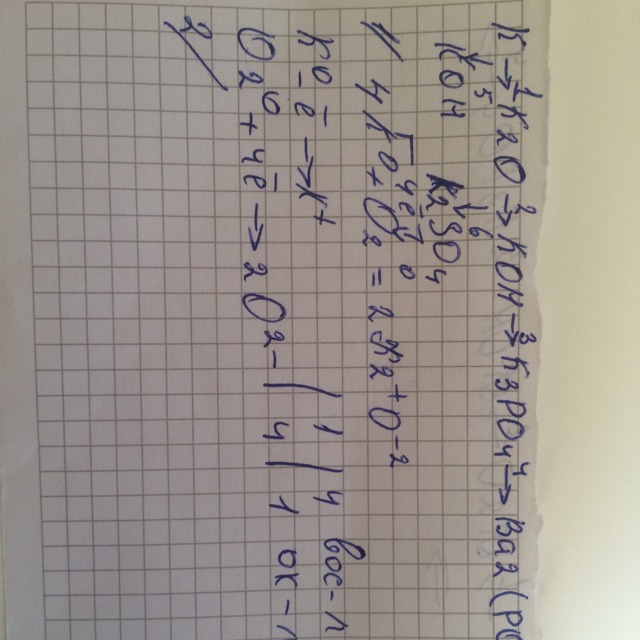 K →¹ K2O →² KOH →³ K3PO4 →⁴ Ba2(PO
↓5 ↓6
KOH K2SO4
1) 4K0 + O2 0 = 2K2+O-2
4e
K0 - e → K+ | 1 | 4 вос-л
O2 0 + 4e → 2O2- | 4 | 1 ок-л
2)